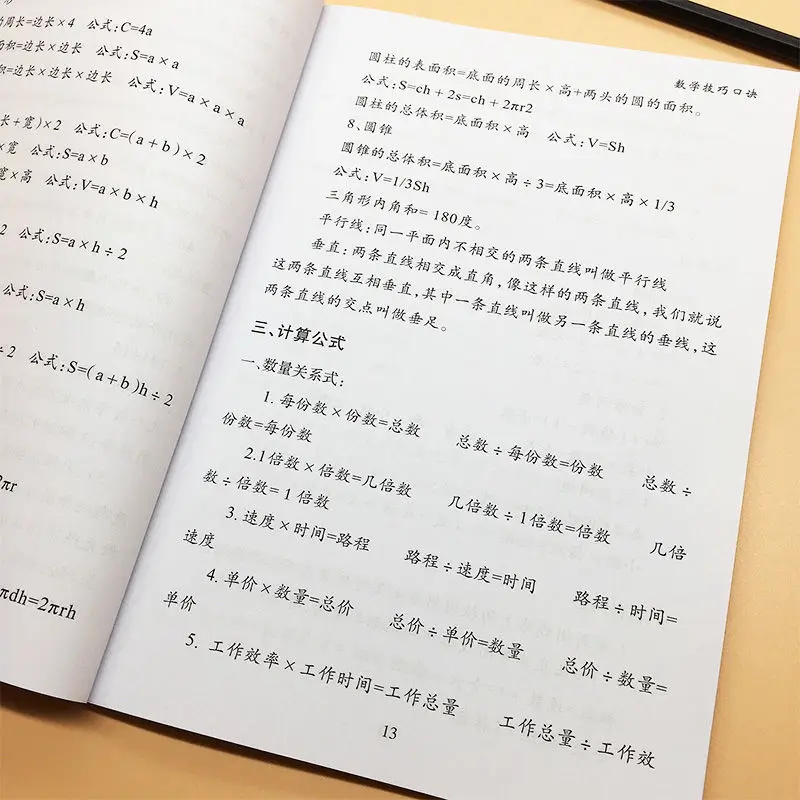 的周长=边长×4 公式:C=4a
面积=边长×边长 公式:S=a×a
积=边长×边长×边长 公式:V=a×a×a
长+宽)×2 公式:C=(a+b)×2
×宽 公式:S=a×b
宽×高 公式:V=a×b×h
2 公式:S=a×h÷2
公式:S=a×h
÷2 公式:S=(a+b)h÷2
2πr
πdh=2πrh
数学技巧口诀
圆柱的表面积=底面的周长×高+两头的圆的面积。
公式:S=ch+2s=ch+2πr2
圆柱的总体积=底面积×高 公式:V=Sh
8、圆锥
圆锥的总体积=底面积×高÷3=底面积×高×1/3
公式:V=1/3Sh
三角形内角和=180度。
平行线:同一平面内不相交的两条直线叫做平行线
垂直:两条直线相交成直角,像这样的两条直线,我们就说
这两条直线互相垂直,其中一条直线叫做另一条直线的垂线,这
两条直线的交点叫做垂足。
三、计算公式
一、数量关系式:
1.每份数×份数=总数 总数÷每份数=份数 总数÷
份数=每份数
2.1倍数×倍数=几倍数 几倍数÷1倍数=倍数 几倍
数÷倍数=1倍数
3.速度×时间=路程 路程÷速度=时间 路程÷时间=
速度
4.单价×数量=总价 总价÷单价=数量 总价÷数量=
单价
5.工作效率×工作时间=工作总量 工作总量÷工作效
13